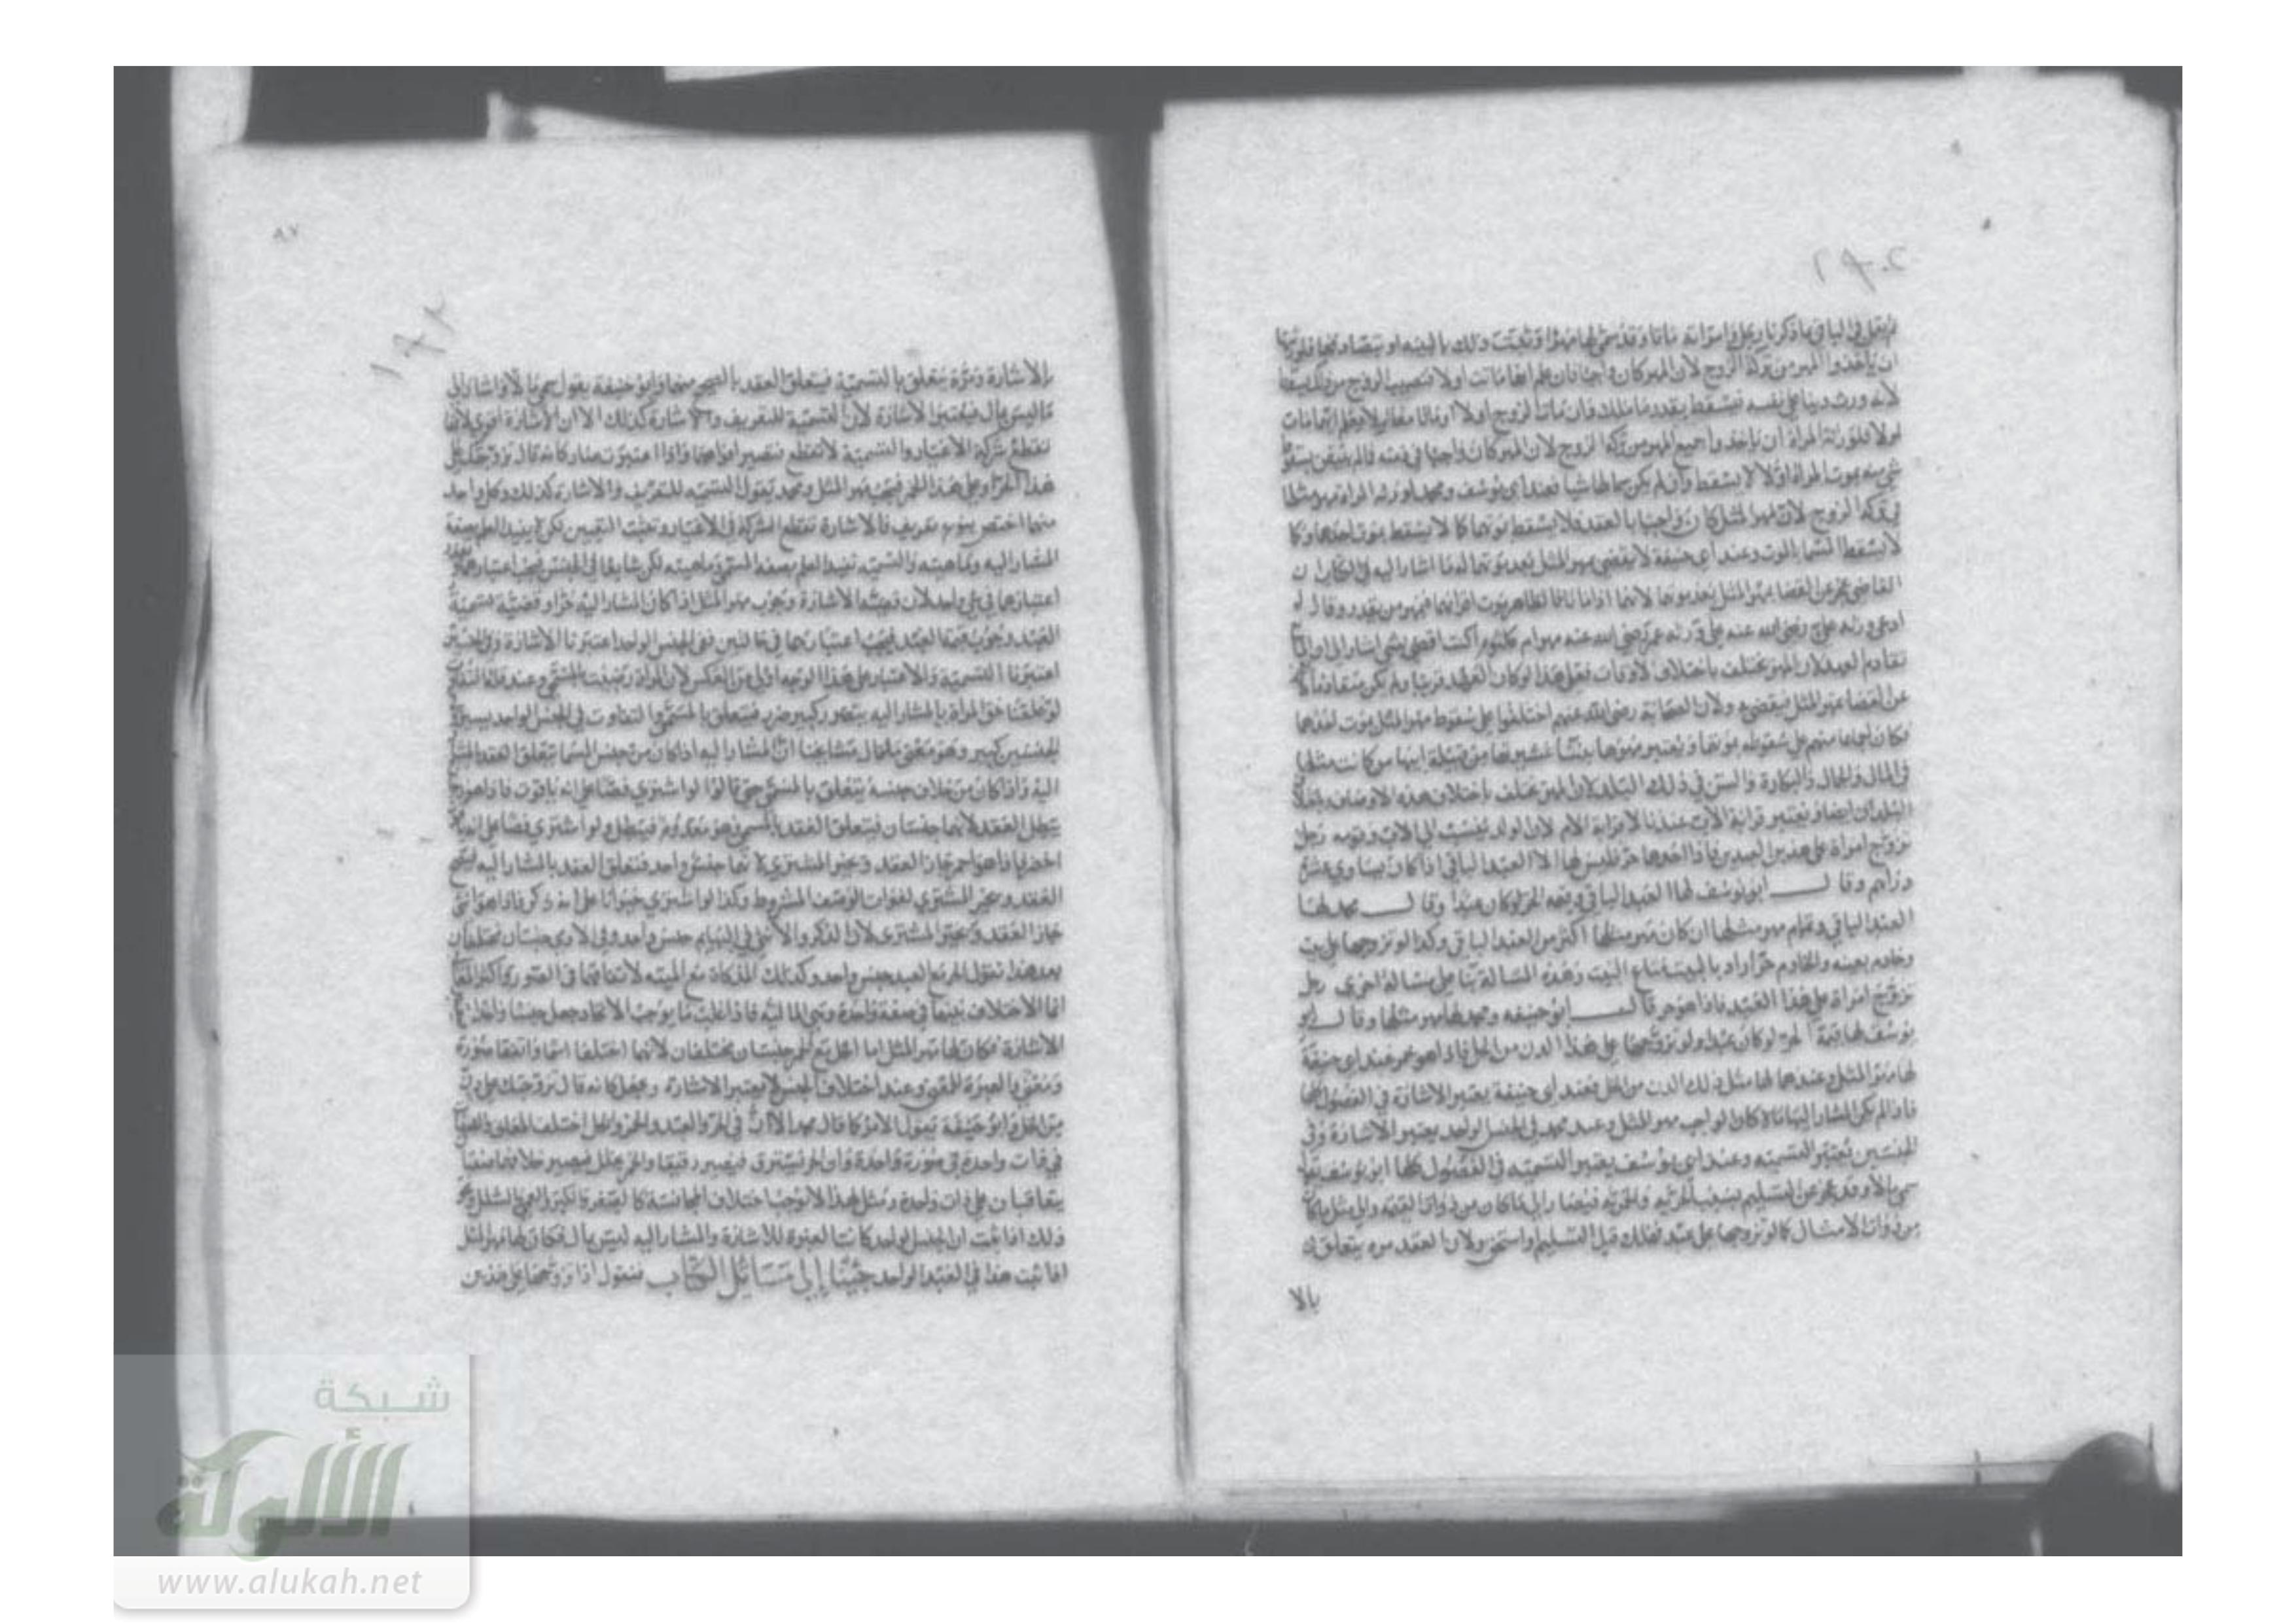 ١٩٠٢
لم يقل في الباقي ما ذكرنا رجل وامراته ماتا وقد سمى لها مهرا وثبت ذلك بالبينه او بتصادقهما فلورثتها
ان ياخذوا المهر من تركة الزوج لان المهر كان واجبا فان علم انها ماتت اولا فنصيب الزوج من ذلك يسقط
لانه ورث دينا على نفسه فيسقط بقدر ما ملك فان مات الزوج اولا او ماتا معا او لا يعلم ايهما مات
اولا فلورثة المراة ان ياخذوا جميع المهر من تركة الزوج لان المهر كان واجبا في ذمته فالم يقبض يسقط
شي منه بموت المراة اولا لا يسقط وان لم يكن سما لها شيا فعند ابي يوسف ومحمد لورثه المراة مهر مثلها
في تركة الزوج لان مهر المثل كان واجبا بالعقد فلا يسقط بموتهما كما لا يسقط بموت احدهما وكما
لا يسقط المسما بالموت وعند ابي حنيفة لا يقضى بمهر المثل بعد موتهما لما اشار اليه في الكتاب ان
القاضي عجز عن القضا بمهر المثل بعد موتهما لانهما اذا ماتا فالظاهر موت اقرانهما فبمهر من يقدر وقال لو
ادعى ورثه علي رضي الله عنه على ورثه عمر رضي الله عنه مهر ام كلثوم اكنت اقضي بشي اشار الى انه اذا
تقادم العهد لان المهر يختلف باختلاف الاوقات فعلى هذا لو كان العهد قريبا ولم يكن متقادما لا
عن القضا بمهر المثل فيقضي ولان الصحابة رضي الله عنهم اختلفوا على سقوط مهر المثل بموت احدهما
فكان اجماعا منهم على سقوطه بموتهما ويعتبر مهرها بنسا عشيرتها من قبيلة ابيها من كانت مثلها
في المال والجمال والبكارة والسن في ذلك البلد لان المهر يختلف باختلاف هذه الاوصاف
البلدان ايضا ويعتبر قرابة الاب عندنا لا قرابة الام لان الولد ينسب الى الاب وقومه رجل
تزوج امراة على هذين العبدين فاذا احدهما حر فليس لها الا العبد الباقي اذا كان يساوي عشرة
دراهم وقال ابو يوسف لها العبد الباقي وقيمه الحر لو كان عبدا وقال محمد لها
العبد الباقي وتمام مهر مثلها ان كان مهر مثلها اكثر من العبد الباقي وكذا لو تزوجها على بيت
وخادم بعينه والخادم حر اراد بالبيت متاع البيت وهذه المسالة بنا على مسالة اخرى رجل
تزوج امراة على هذا العبد فاذا هو حر قال ابو حنيفه ومحمد لها مهر مثلها وقال ابو
يوسف لها قيمة الحر لو كان عبدا ولو تزوجها على هذا الدن من الخل فاذا هو خمر عند ابي حنيفة
لها مهر المثل وعندهما لها مثل ذلك الدن من الخل فعند ابي حنيفة يعتبر الاشارة في الفصول كلها
فاذا لم يكن المشار اليها مالا كان الواجب مهر المثل وعند محمد في الجنس الواحد يعتبر الاشارة وفي
الجنسين يعتبر التسميه وعند ابي يوسف يعتبر التسميه في الفصول كلها ابو يوسف يقول
سمى مالا وقد عجز عن التسليم بسبب الحريه والخمريه فيصار الى ما كان من ذوات القيمه والى مثل ما كان
من ذوات الامثال كما لو تزوجها على عبد فهلك قبل التسليم او استحق ولان العقد مره يتعلق
بالا
٨٧
بالاشارة ومرة يتعلق بالتسمية فيتعلق العقد بالصحيح منهما وابو حنيفة يقول سمى مالا واشار الى
ما ليس بمال فيعتبر الاشارة لان التسمية للتعريف والاشارة كذلك الا ان الاشارة اقوى لانها
تقطع شركة الاغيار والتسمية لا تقطع فتصير اقواهما واذا اعتبرت صار كانه قال تزوجتك على
هذا الحر او على هذا الخمر فيجب مهر المثل ومحمد يقول التسميه للتعريف والاشارة كذلك وكل واحد
منهما اختص بنوع تعريف فالاشارة تقطع الشركة في الاغيار وتعين التعيين لكن لا يفيد العلم بصفة
المشار اليه وماهيته والتسميه تفيد العلم بصفه المسمى وماهيته لكن شايعا في الجنس فيجب اعتبارهما
اعتبارهما في شي واحد لان قضية الاشارة وجوب مهر المثل اذا كان المشار اليه حرا وقضية تسمية
العبد وجوب قيمة العبد فيجب اعتبارهما في حالتين ففي الجنس الواحد اعتبرنا الاشارة وفي الجنسين
اعتبرنا التسمية والاعتبار على هذا الوجه اولى من العكس لان المراة رضيت بالمسمى وعند
لو علقنا حق المراة بالمشار اليه يتضرر كبير ضرر فيتعلق بالمسمى والتفاوت في الجنس الواحد يسير وفي
الجنسين كبير وهو معنى ما قال مشايخنا ان المشار اليه اذا كان من جنس المسما يتعلق العقد بالمشار
اليه واذا كان من خلاف جنسه يتعلق بالمسمى حتى قالوا لو اشترى فصا على انه ياقوت فاذا هو زجاج
يبطل العقد لانهما جنسان فيتعلق العقد بالمسمى وهو معدوم فيبطل ولو اشترى فصا على انه ياقوت
اخضر فاذا هو احمر جاز العقد ويخير المشتري لانهما جنس واحد فتعلق العقد بالمشار اليه فيصح
العقد ويخير المشتري لفوات الوصف المشروط وكذا لو اشترى حيوانا على انه ذكر فاذا هو انثى
جاز العقد ويخير المشتري لان الذكر والانثى في البهايم جنس واحد وفي الادمي جنسان مختلفان
بعد هذا نقول الحر مع العبد جنس واحد وكذلك المذكاة مع الميته لاتفاقهما في الصورة
انما الاختلاف بينهما في صفة واحدة وهي الماليه فاذا غلب ما يوجب الاتحاد جعل جنسا واحدا
الاشارة فكان لها مهر المثل اما الخل مع الخمر جنسان مختلفان لانهما اختلفا اسما واتفقا صورة
ومعنى والعبرة للمعنى وعند اختلاف الجنس لا يعتبر الاشارة وجعل كانه قال تزوجتك على دن
من الخل وابو حنيفة يقول الامر كما قال محمد الا ان في الحر والعبد والخمر والخل اختلف المعاني
في ذات واحدة في صورة واحدة فان الحر يسترق فيصير رقيقا والخمر يخلل فيصير خلا فهما صفتان
يتعاقبان على ذات واحدة ومثل هذا لا يوجب اختلاف المجانسة كالصغر والكبر
ذلك اذا ثبت ان الجنس واحد كانت العبرة للاشارة والمشار اليه ليس بمال فكان لها مهر المثل
اذا ثبت هذا في العبد الواحد جئنا الى مسائل الكتاب فنقول اذا تزوجها على هذين
شبكة
الألوكة
www.alukah.net